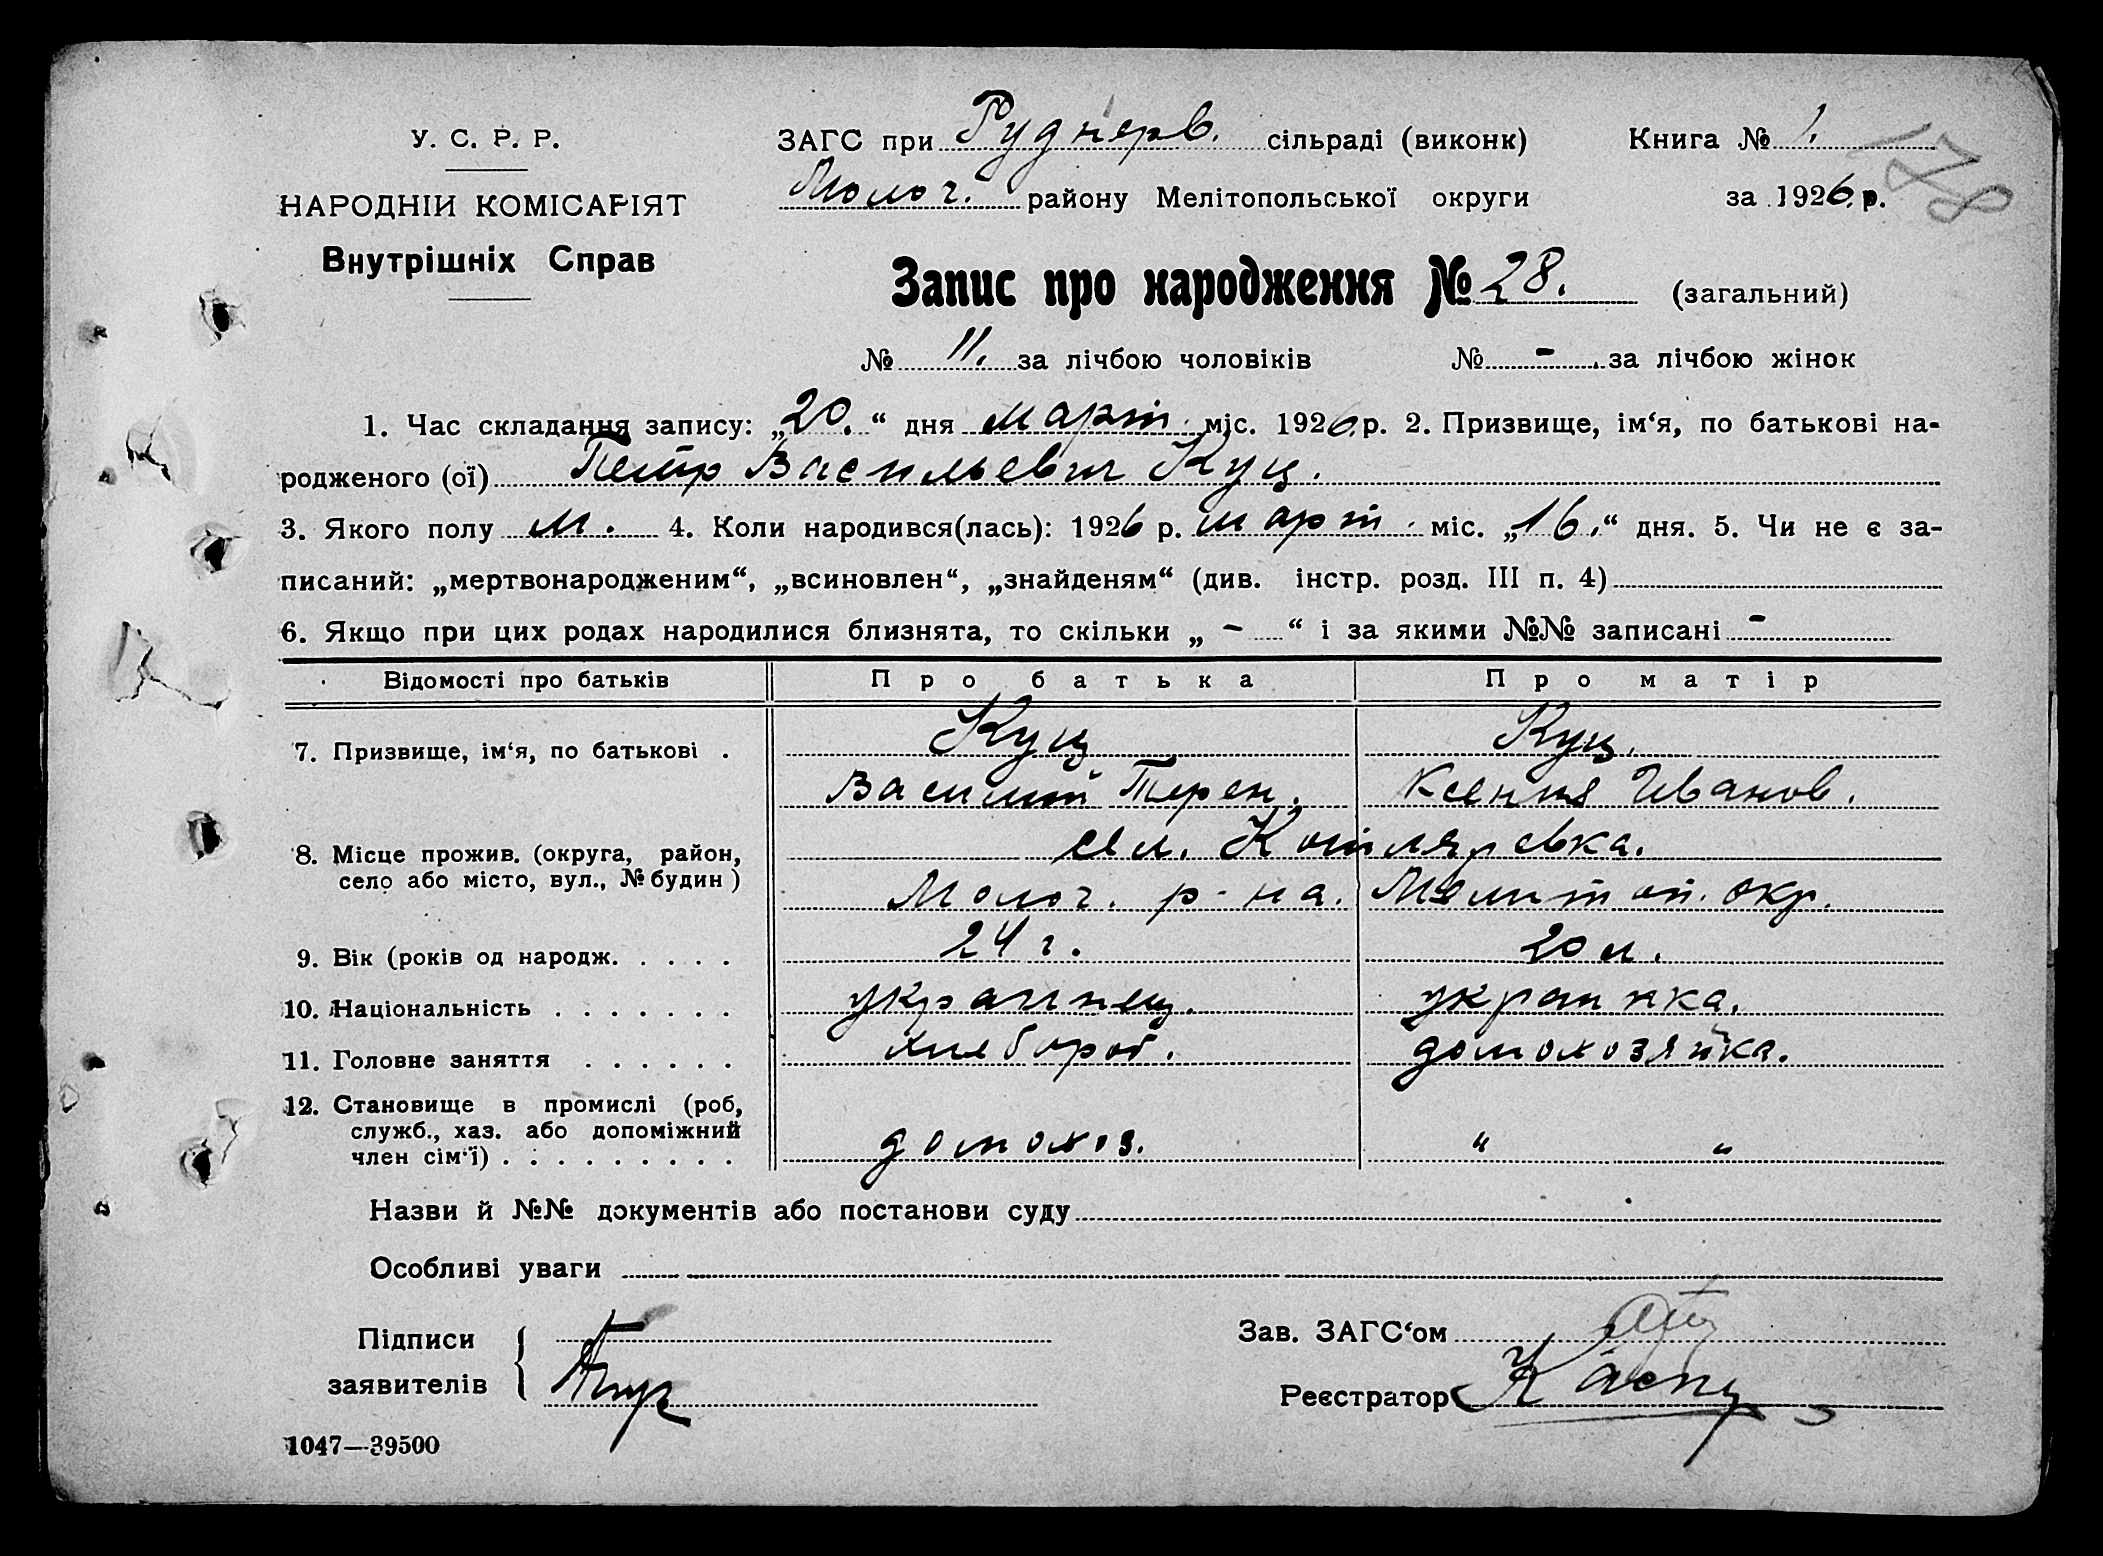 У. С. Р. Р.
НАРОДНІЙ КОМІСАРІЯТ
Внутрішніх Справ
ЗАГС при Руднерв. сільраді (виконк) Книга № 1.
Молоч. району Мелітопольської округи за 1926 р.
178
Запис про народження № 28. (загальний)
№ 11. за лічбою чоловіків № - за лічбою жінок
1. Час складання запису: „20.“ дня март. міс. 1926 р. 2. Призвище, ім‘я, по батькові на-
родженого (ої) Петр Васильевич Куц.
3. Якого полу М. 4. Коли народився(лась): 1926 р. март. міс. „16.“ дня. 5. Чи не є за-
писаний: „мертвонародженим“, „всиновлен“, „знайденям“ (див. інстр. розд. III п. 4)
6. Якщо при цих родах народилися близнята, то скільки „ - “ і за якими №№ записані -
Відомості про батьків Про батька Про матір
7. Призвище, ім‘я, по батькові . Куц Куц.
Василий Терен. Ксения Иванов.
8. Місце прожив. (округа, район, сел. Котляревка.
село або місто, вул., № будин) Молоч. р-на. Мелитоп. окр.
9. Вік (років од народж. . . . . 24 г. 20 л.
10. Національність . . . . . . . украинец. украинка.
11. Головне заняття . . . . . . хлебороб. домохозяйка.
12. Становище в промислі (роб,
служб., хаз. або допоміжний
член сім‘ї) . . . . . . . . . домохоз. " "
Назви й №№ документів або постанови суду
Особливі уваги
Підписи
заявителів
Зав. ЗАГС‘ом
Реєстратор
1047—39500